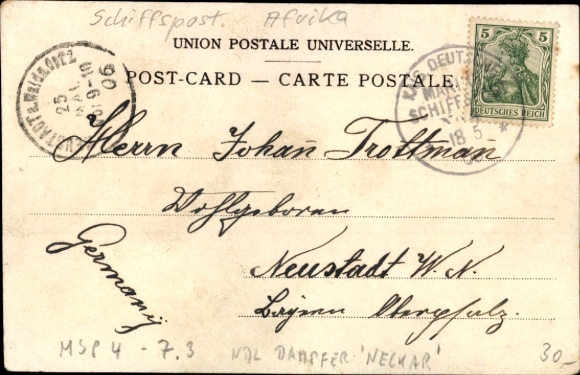 Schiffspost. Afrika
UNION POSTALE UNIVERSELLE.
POST-CARD — CARTE POSTALE
5 5
DEUTSCHES REICH
DEUTSCHE
SCHIFFS
18 5
NEUSTADT a. WALDNAAB
25
MAI
9-10
06
Herrn Johann Trottmann
Wohlgeboren
Neustadt W. N.
Bayern Oberpfalz.
Germany
MSP 4 - 7.3 NDL DAMPFER 'NECKAR' 30.-